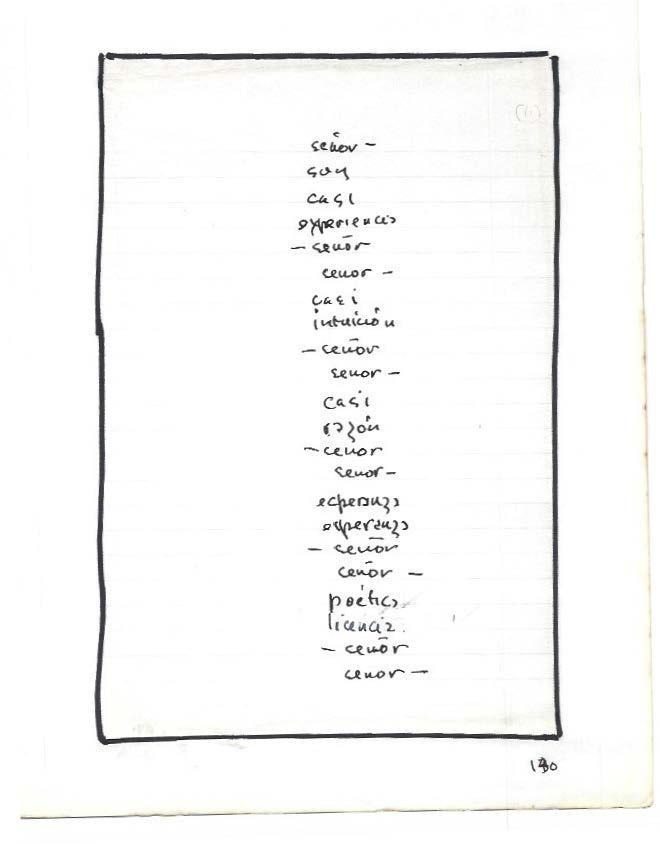 (6)
señor –
soy
casi
experiencia
– señor
senor –
casi
intuición
– señor
senor –
casi
razón
– senor
senor –
esperanza
esperanza
– señor
señor –
poética
licencia.
– señor
senor –